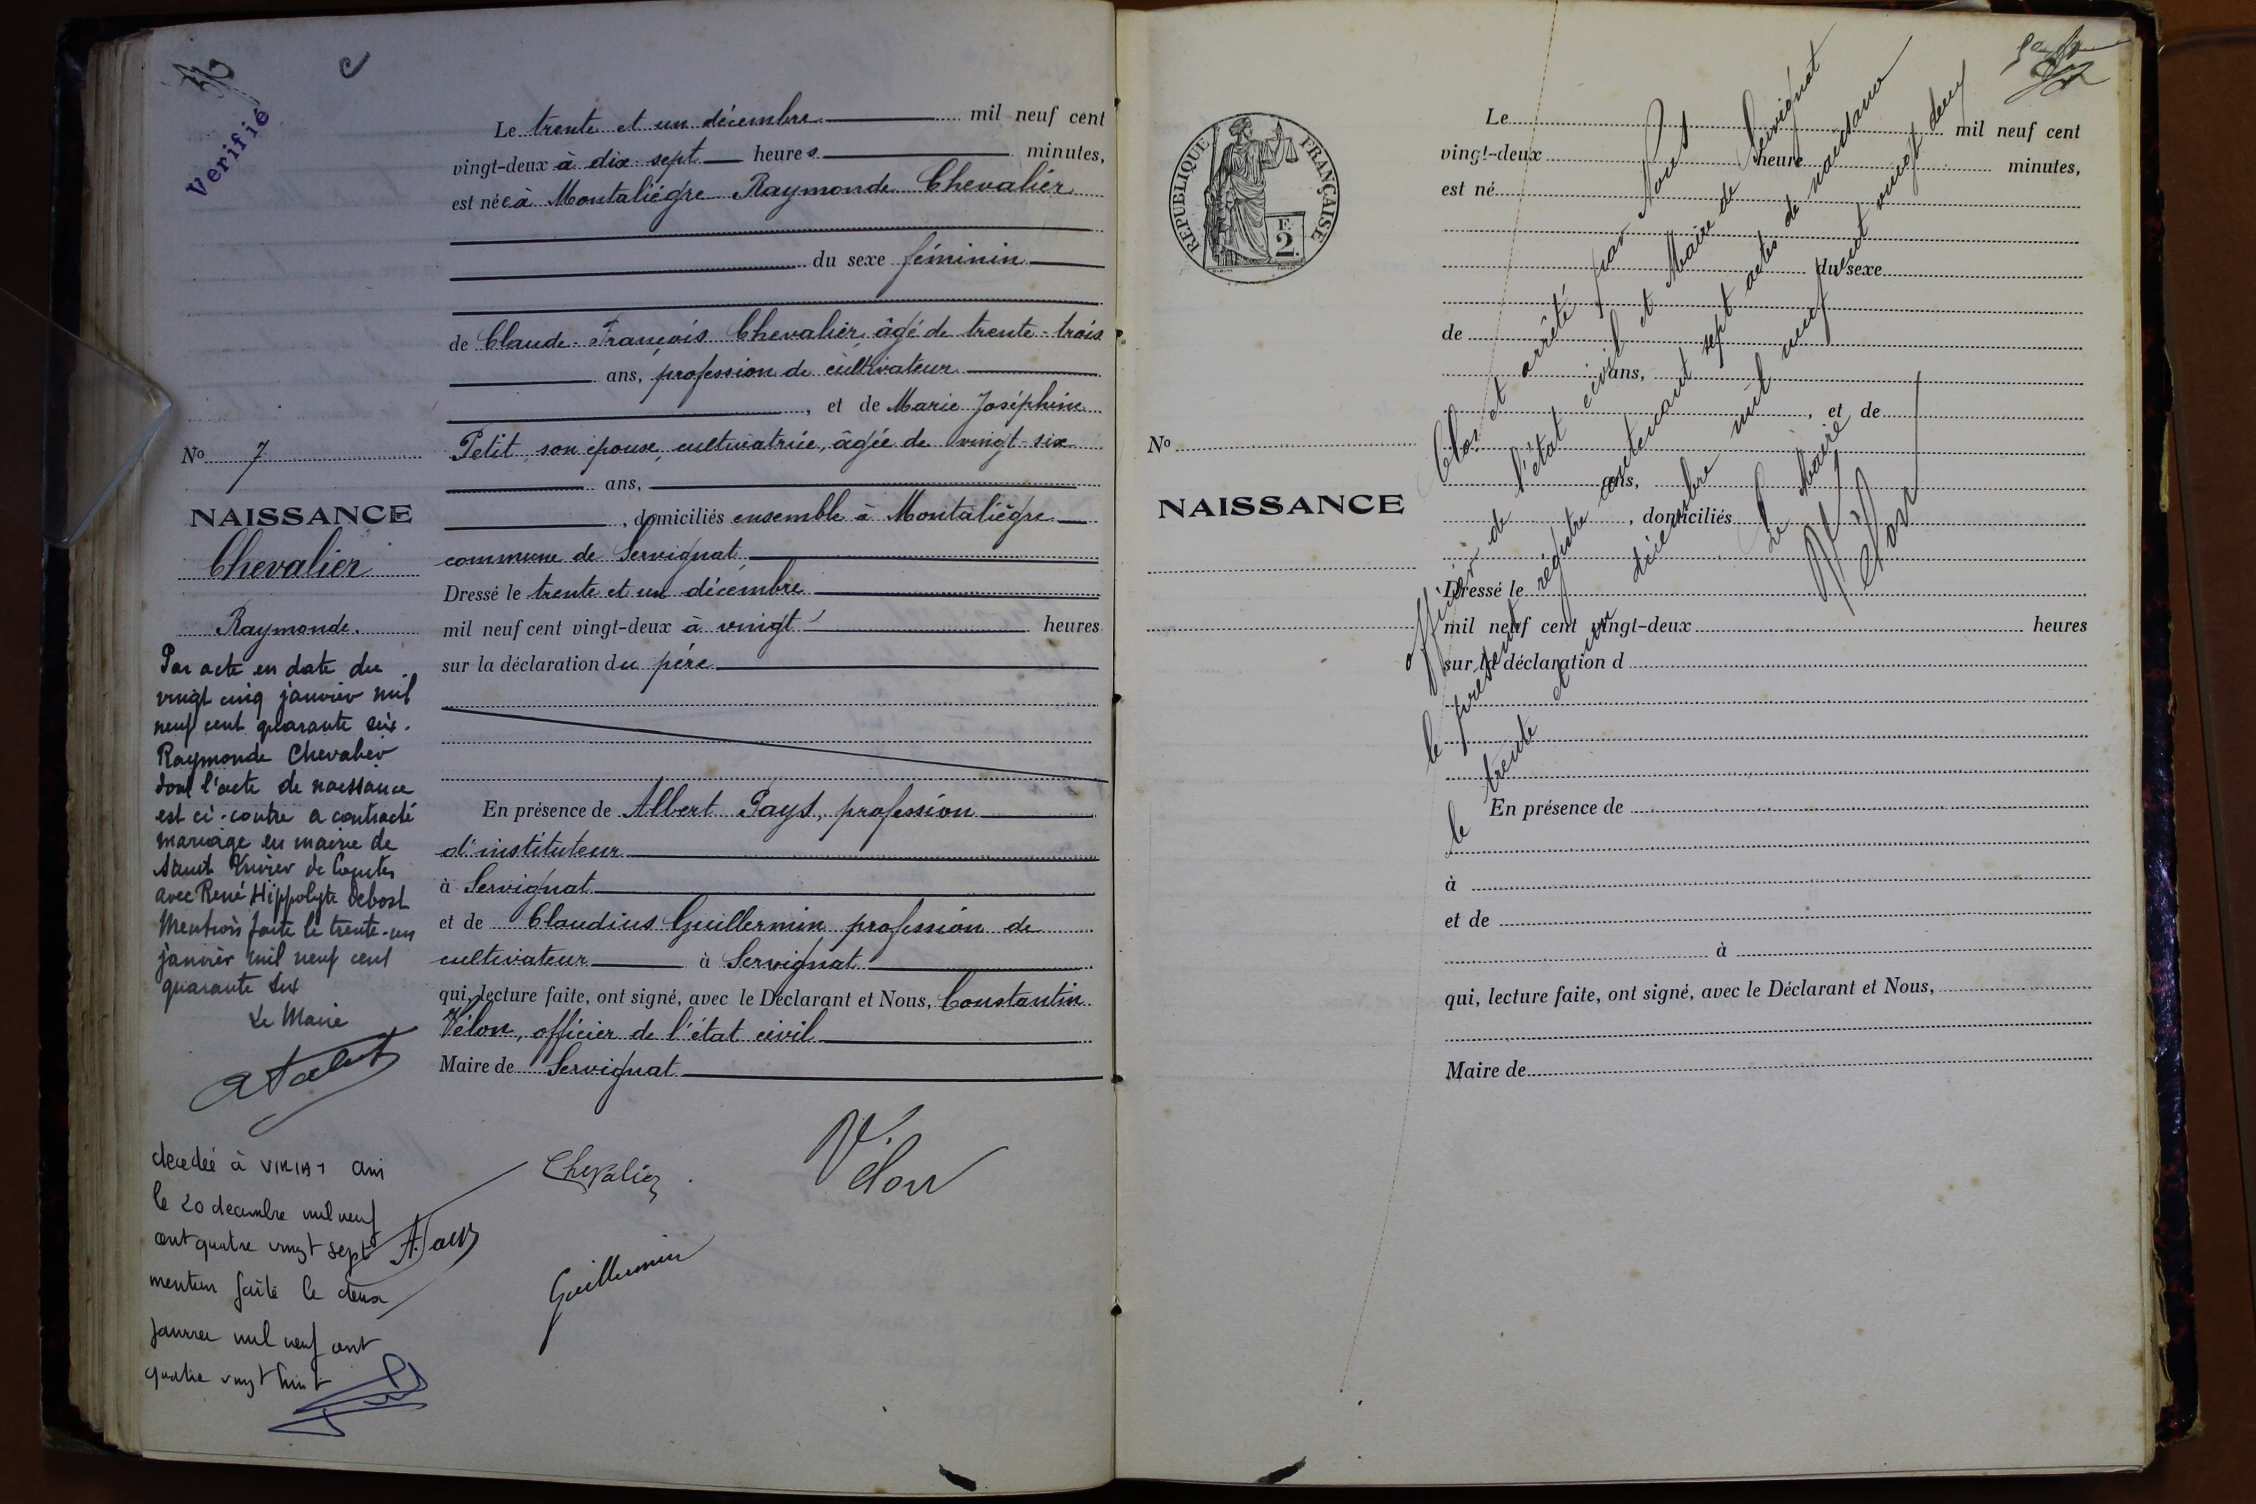 c
Vérifié
Le trente et un décembre mil neuf cent
vingt-deux à dix sept heures minutes,
est née à Montaliégre Raymonde Chevalier
du sexe féminin
de Claude François Chevalier, âgé de trente-trois
ans, profession de cultivateur
, et de Marie Joséphine
Petit, son épouse, cultivatrice, âgée de vingt-six
ans,
, domiciliés ensemble à Montaliégre
commune de Servignat
Dressé le trente et un décembre
mil neuf cent vingt-deux à vingt heures
sur la déclaration du père
En présence de Albert Pays, profession
d'instituteur
à Servignat
et de Claudius Guillermin profession de
cultivateur à Servignat
qui, lecture faite, ont signé, avec le Déclarant et Nous, Constantin
Vélon, officier de l'état civil
Maire de Servignat
Chevalier
Vélon
A. Pays
Guillermin
No 7
NAISSANCE
Chevalier
Raymonde.
Par acte en date du
vingt cinq janvier mil
neuf cent quarante six.
Raymonde Chevalier
dont l'acte de naissance
est ci-contre a contracté
mariage en mairie de
avec René Hippolyte Debost
Mention faite le trente-un
janvier mil neuf cent
quarante six
Le Maire
decedée à VIRIAT Ain
le 20 decembre mil neuf
cent quatre vingt sept
mention faite le deux
janvier mil neuf cent
quatre vingt huit
RÉPUBLIQUE FRANÇAISE
F.
2.
No
NAISSANCE
Le mil neuf cent
vingt-deux heure minutes,
est né
du sexe
de
ans,
, et de
ans,
, domiciliés
Dressé le
mil neuf cent vingt-deux heures
sur la déclaration d
En présence de
à
et de
à
qui, lecture faite, ont signé, avec le Déclarant et Nous,
Maire de
Clos et arrêté par Nous
officier de l'état civil et Maire de Servignat
le présent régistre contenant sept actes de naissance
le trente et un décembre mil neuf cent vingt deux
Le Maire
Vélon